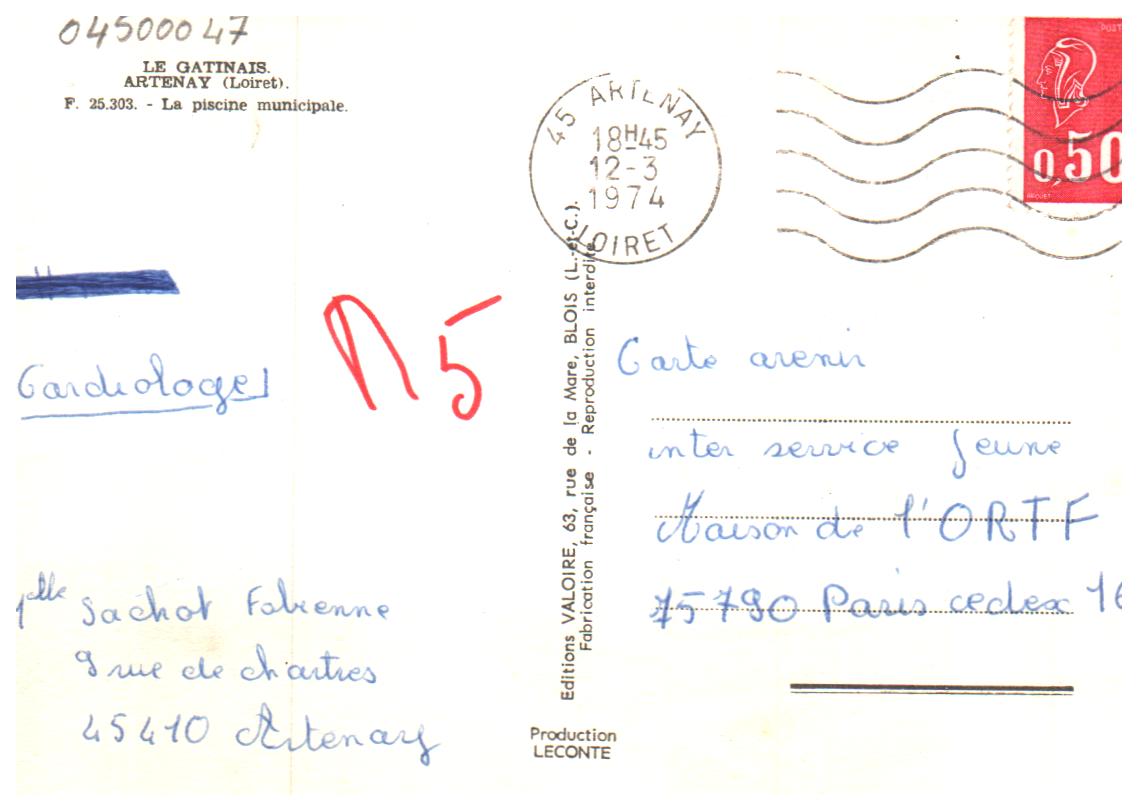 04500047
LE GATINAIS.
ARTENAY (Loiret).
F. 25.303. - La piscine municipale.
45 ARTENAY
18H45
12-3
1974
LOIRET
POST
0,50
BEQUET
Cardiologe
N5
Editions VALOIRE, 63, rue de la Mare, BLOIS (L.-et-C.).
Fabrication française - Reproduction interdite
Carte avenir
inter service Jeune
Maison de l'ORTF
75790 Paris cedex 16
Mlle Sachot Fabienne
9 rue de chartres
45410 Artenay
Production
LECONTE